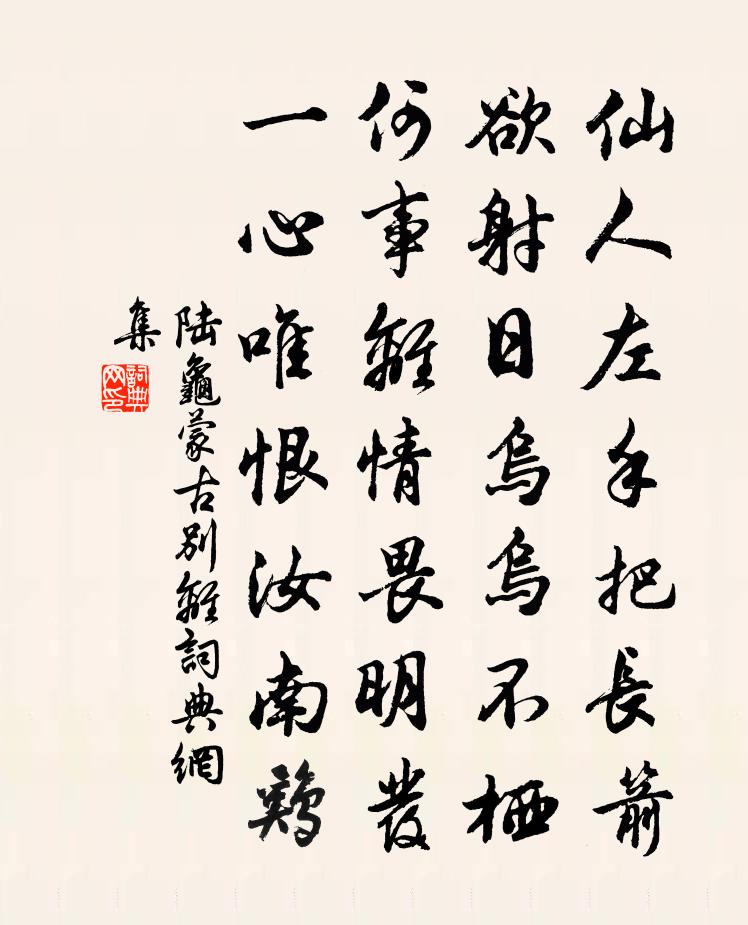 仙人左手把長箭
欲射日烏烏不栖
何事離情畏明發
一心唯恨汝南鷄
陸龜蒙古別離詞典網
集
詞典網印